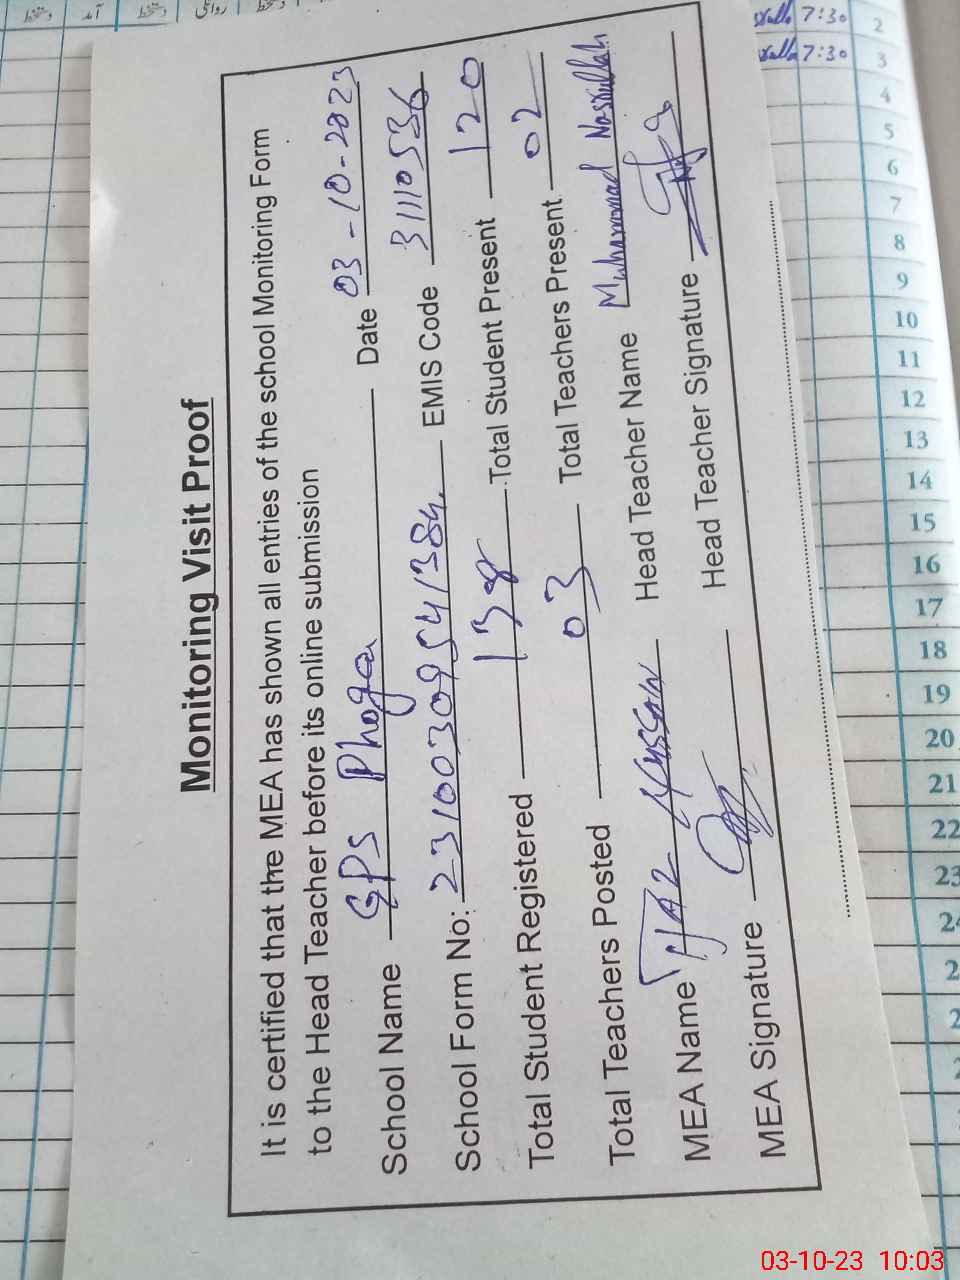 Monitoring Visit Proof
It is certified that the MEA has shown all entries of the school Monitoring Form
to the Head Teacher before its online submission
School Name GPS Phoga Date 03-10-2023
School Form No: 23100309541384 EMIS Code 31110536
Total Student Registered 138 Total Student Present 120
Total Teachers Posted 03 Total Teachers Present 02
MEA Name Hussain Head Teacher Name Muhammad Nasrullah
MEA Signature Head Teacher Signature
دستخط آمد دستخط روانگی دستخط
7:30 2
7:30 3
4
5
6
7
8
9
10
11
12
13
14
15
16
17
18
19
20
21
22
23
24
03-10-23 10:03